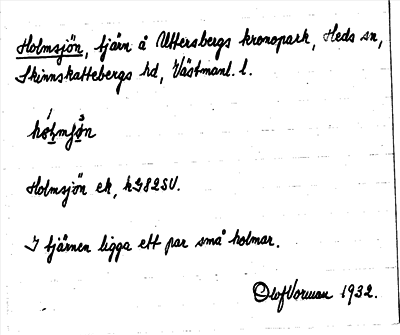 Holmsjön, tjärn å Uttersbergs kronopark, Heds sn,
Skinnskattebergs hd, Västmanl. l.
Holmsjön ek,
I tjärnen ligga ett par små holmar.
Olof Vorman 1932.